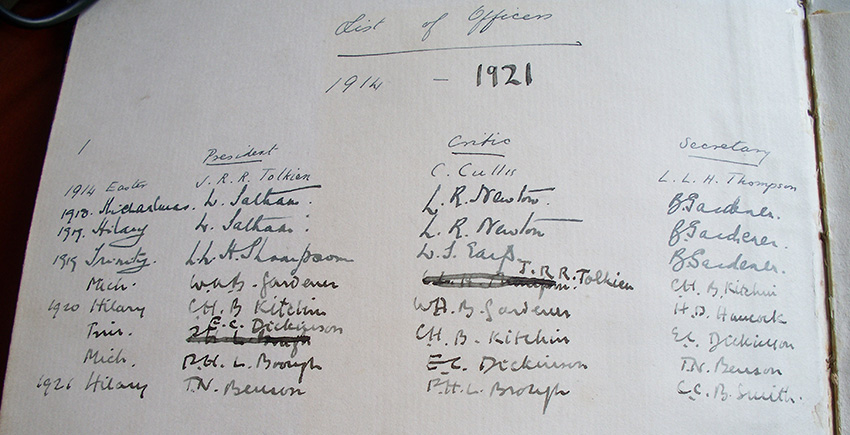 List of Officers
1914 - 1921
President Critic Secretary
1914 Easter J. R. R. Tolkien C. Cullis L. L. H. Thompson
1918. Michaelmas. L. R. Newton. B. Gardener.
1919. Hilary L. R. Newton B. Gardener.
1919 Trinity. L. L. H. Thompson W. S. Earp B. Gardener.
Mich. W.A.B. Gardener J. R. R. Tolkien C.H. B. Kitchin
1920 Hilary C.H. B Kitchin W.A. B. Gardener H. D. Hancock
Trin. E. C. Dickinson C.H. B. Kitchin E.C. Dickinson
Mich. R.H. L. Brough E.C. Dickinson T.N. Benson
1921 Hilary T.N. Benson R.H. L. Brough C.C. B. Smith.